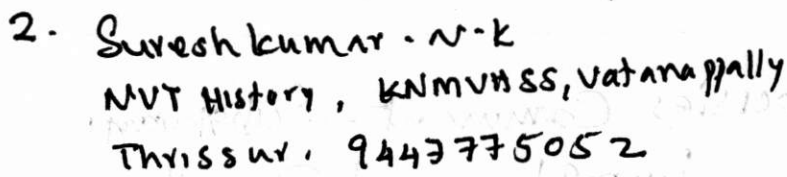 2. Sureshkumar. N-K
NVT History, KNMVHSS, Vatanappally
Thrissur. 9447775052